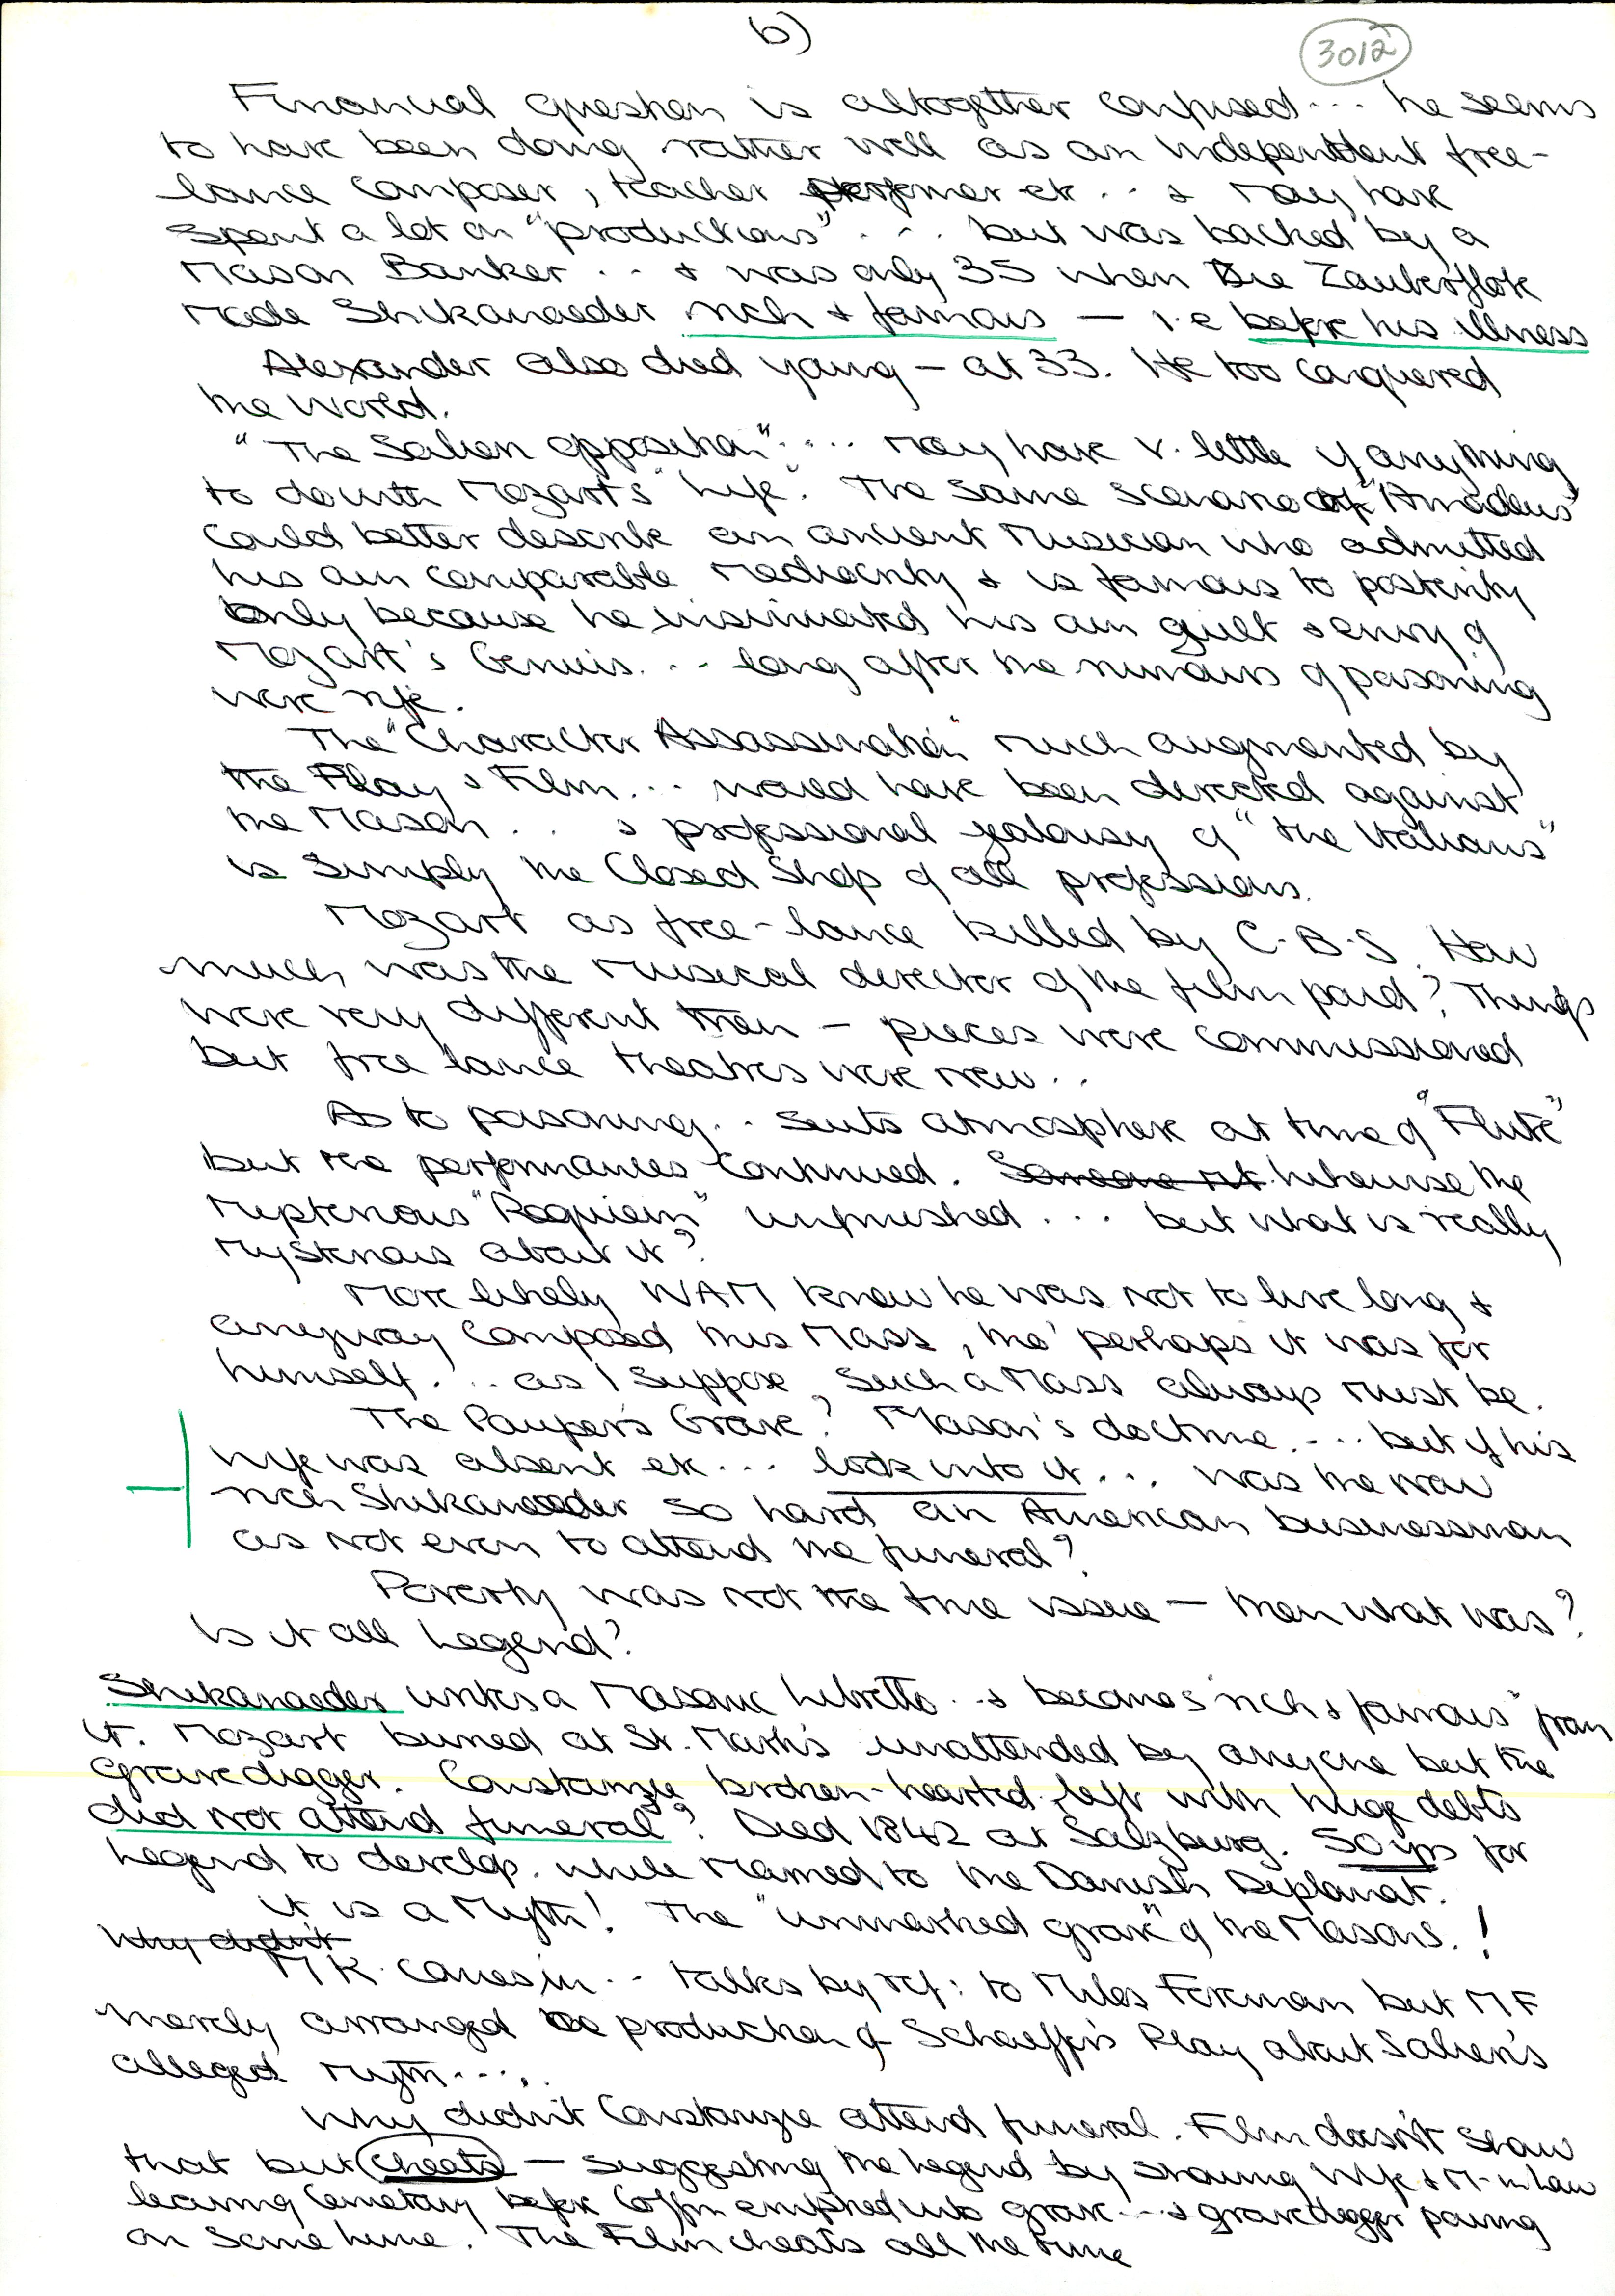 b)
3012
Financial question is altogether confused... he seems
to have been doing rather well as an independent free-
lance composer, teacher performer etc... & may have
spent a lot on "productions"... but was backed by a
Mason Banker... & was only 35 when Die Zauberflote
made Shikanaeder rich & famous — i.e before his illness
Alexander also died young — at 33. He too conquered
the world.
"The Salieri opposition".... may have v. little if anything
to do with Mozart's "life". The same scenario of "Amadeus"
could better describe an ancient musician who admitted
his own comparable mediocrity & is famous to posterity
only because he insinuated his own guilt & envy of
Mozart's Genuis... long after the rumours of poisoning
were rife.
The "Character Assassination" much augmented by
the Play & Film... would have been directed against
the Mason.. & professional jealousy of "the Italians"
is simply the Closed Shop of all professions.
Mozart as free-lance killed by C.B.S. How
much was the musical director of the film paid? Things
were very different then — pieces were commissioned
but free lance theatres were new..
As to poisoning.. suits atmosphere at time of "Flute"
but the performances continued. likewise the
mysterious "Requiem" unfinished... but what is really
mysterious about it?
More likely WAM knew he was not to live long &
anyway composed this Mass, tho' perhaps it was for
himself... as I suppose, such a Mass always must be.
The Pauper's Grave? Mason's doctrine.... but if his
wife was absent etc... look into it... was the now
rich Shikanaeder so hard an American businessman
as not even to attend the funeral?
Poverty was not the true issue — then what was?
Is it all Legend?
Shikanaeder writes a Masonic Libretto.. & becomes "rich & famous" from
it. Mozart buried at St. Mark's unattended by anyone but the
Gravedigger. Constanze broken-hearted left with huge debts
did not attend funeral? Died 1842 at Salzburg. 50 yrs for
Legend to develop. while married to the Danish Diplomat.
It is a Myth! The "unmarked grave" of the Masons.!
Why didn't
MK. comes in... talks by ref: to Milos Foreman but MF
merely arranged the production of Schaeffer's Play about Salieri's
alleged myth.....
Why didn't Constanze attend funeral. Film doesn't show
that but cheats — suggesting the legend by showing Wife & M-in Law
leaving Cemetary before Coffin emptied into grave... & gravedigger pouring
on some lime. The Film cheats all the time